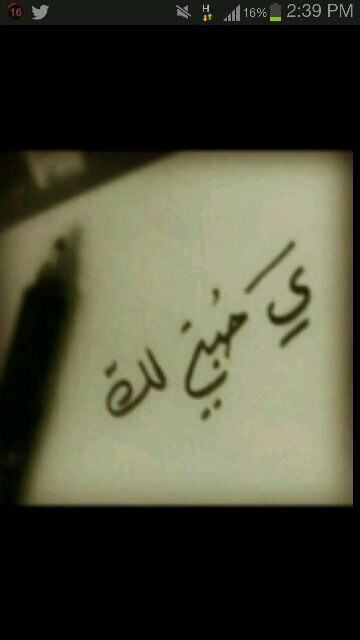 16 H 16% 2:39 PM
يَ حُبي لك